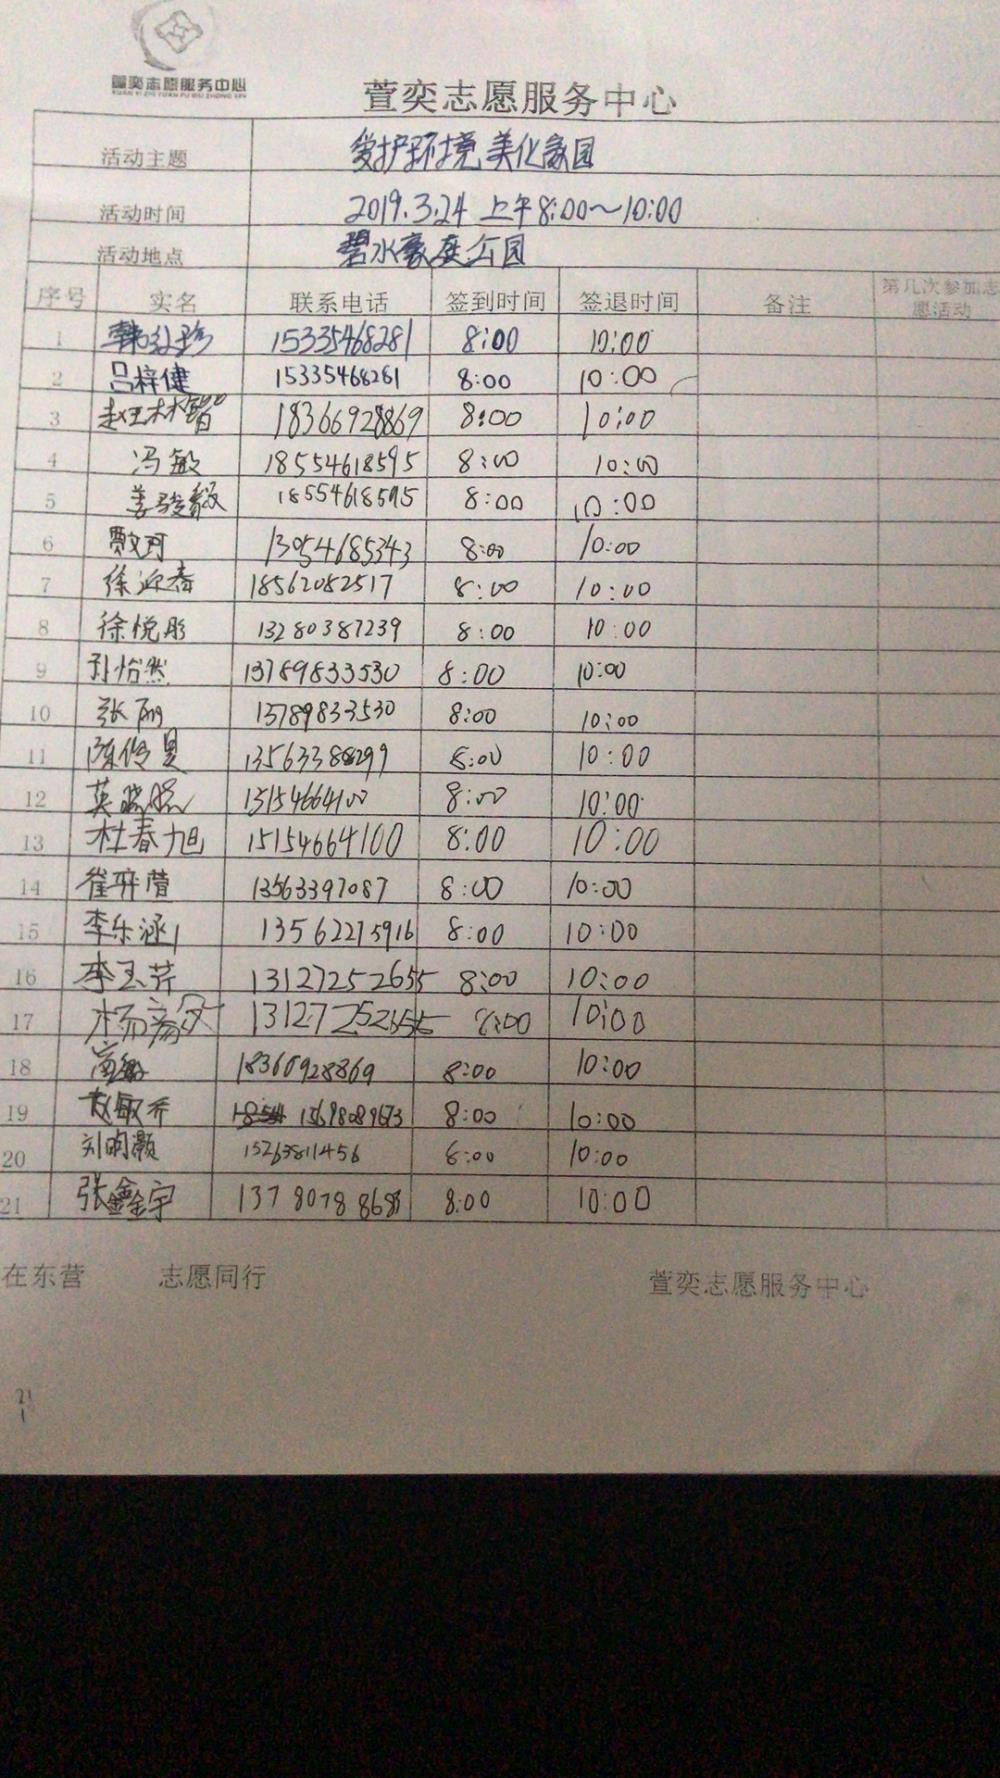 萱奕志愿服务中心
XUAN YI ZHI YUAN FU WU ZHONG XIN
萱奕志愿服务中心
活动主题 爱护环境 美化家园
活动时间 2019.3.24 上午8:00～10:00
活动地点 碧水豪庭公园
序号 实名 联系电话 签到时间 签退时间 备注 第几次参加志愿活动
1 韩红珍 15335468281 8:00 10:00
2 吕梓健 15335468281 8:00 10:00
3 赵王林智 18366928869 8:00 10:00
4 冯敏 18554618595 8:00 10:00
5 姜骏毅 18554618595 8:00 10:00
6 13054685343 8:00 10:00
7 徐迎春 18562082517 8:00 10:00
8 徐悦彤 13280387239 8:00 10:00
9 孙怡然 13789833530 8:00 10:00
10 张丽 13789833530 8:00 10:00
11 陈伶昊 13563388299 8:00 10:00
12 15154664100 8:00 10:00
13 杜春旭 15154664100 8:00 10:00
14 崔雅萱 13563397087 8:00 10:00
15 李乐涵 13562275916 8:00 10:00
16 李玉芹 13127252655 8:00 10:00
17 13127252655 8:00 10:00
18 18366928869 8:00 10:00
19 赵敏乔 15698089673 8:00 10:00
20 刘明灏 15263811456 8:00 10:00
21 张鑫宇 13780788688 8:00 10:00
在东营 志愿同行 萱奕志愿服务中心
21